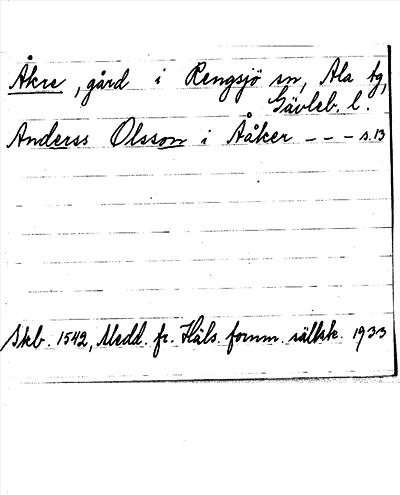 Åkre, gård i Rengsjö sn, Ala tg,
Gävleb. l.
Anderss Olsson i Ååker - - - s. 13
Skb. 1542, Medd. fr. Häls. fornm. sällsk. 1933